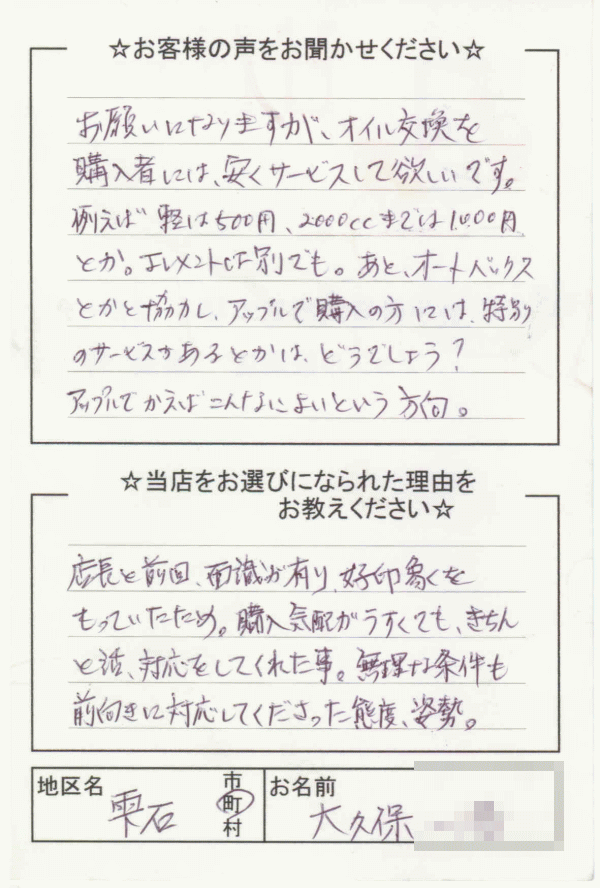 ☆お客様の声をお聞かせください☆
お願いになりますが、オイル交換を
購入者には、安くサービスして欲しいです。
例えば 軽は500円、2000ccまでは1000円
とか。エレメントは別でも。あと、オートバックス
とかと協力し、アップルで購入の方には、特別
のサービスがあるとかは、どうでしょう？
アップルでかえばこんなによいという方向。
☆当店をお選びになられた理由を
お教えください☆
店長と前回、面識が有り、好印象を
もっていたため。購入気配がうすくても、きちん
と話、対応をしてくれた事。無理な条件も
前向きに対応してくださった態度、姿勢。
地区名 雫石 市町村 お名前 大久保